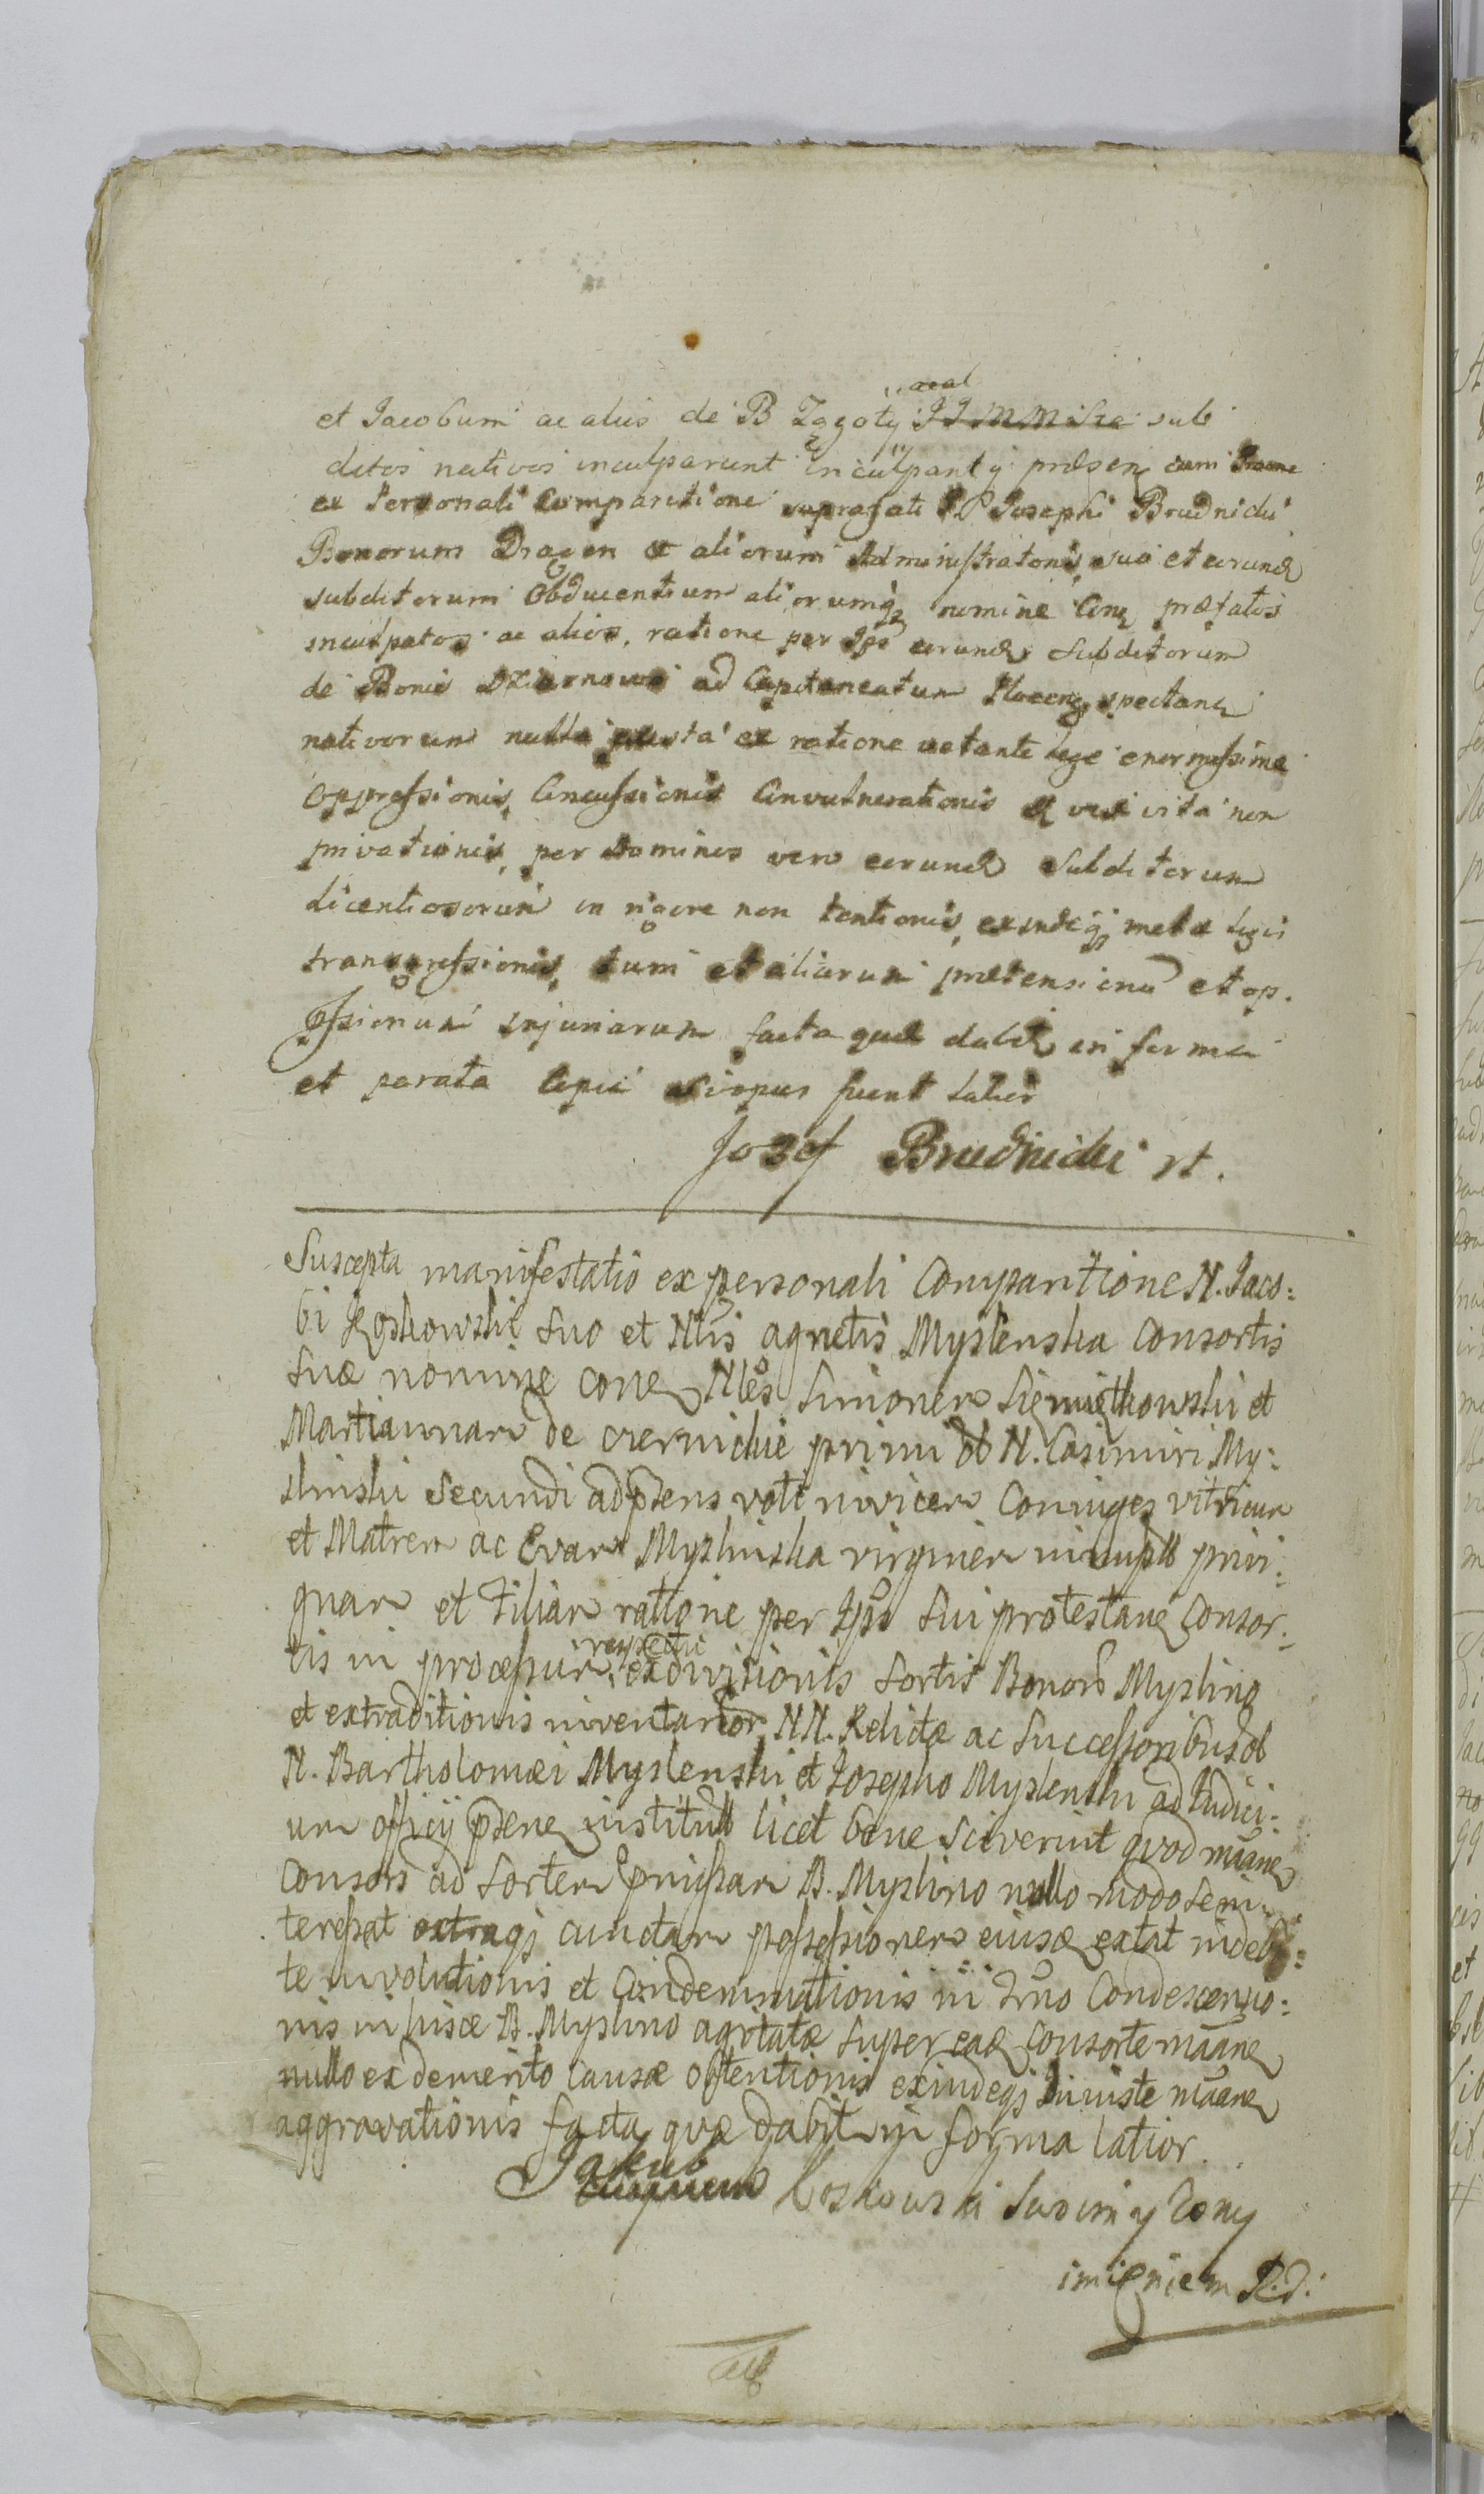 et Jacobum ac alios de B Zągoty subditos
ditos nativos inculparunt inculpantq presen cum
ex Personali Comparitione suprafati P Josephi Brudnicki
Bonorum Drogen et aliorum Administratoris, suo et eorund
subditorum Obducentium aliorumq nomine Con præfatos
inculpatos ac alios, ratione per Ipsos eorund Subditorum
de Bonis Dziarnowo ad Capitaneatum Plocen spectan
nativorum nulla justa ex ratione vetante lege enormissimæ
oppressionis, Concussionis Convulnerationis et vix vita non
privationis, per Dominos vero eorund Subditorum
licentiosorum in rigore non tentionis, exindeq metæ legis
transgressionis, tum et aliarum prætensionũ et op.
pssionum injuriarum facta quæ dabit in forma
et parata Copia si opus fuerit latior
Jozef Brudnicki st.
Suscepta manifestatio ex personali Comparitione N. Jaco:
bi Koskowski suo et Nlis agnetis Myslenska Consortis
suæ nomine con Nles Simonem et
Mariannam de czernickie primi ol N. Casimiri My:
slinski Secundi ad psens voti invicem Coniuges vitricum
et Matrem ac Evam Myslinska virginem privi:
gnam et Filiam rattione per Ipsos sui protestan Consor:
tis in processum respectu exdivisionis Sortis Bonorũ Myslino
et extraditionis inventarior NN. Relictæ ac Successoribus ol
N. Bartholomæi Myslenski et Josepho Myslenski ad Judici:
um officij psens licet bene sciverint quod mãane
Consors ad Sortem pmissam B. Myslino nullo modo sem
teressat cunctam possessionem eiusd extat indebi:
te involutionis et Condemnationis in Trno Condescensio:
nis in hisce B. Myslino agitatæ super ead consorte mãane
nullo ex demerito causæ obtentionis exindeq iniuste mãane
aggravationis facta quæ dabit in forma latior.
Jakub Koskowski swoim y zony
imieniem R.d.